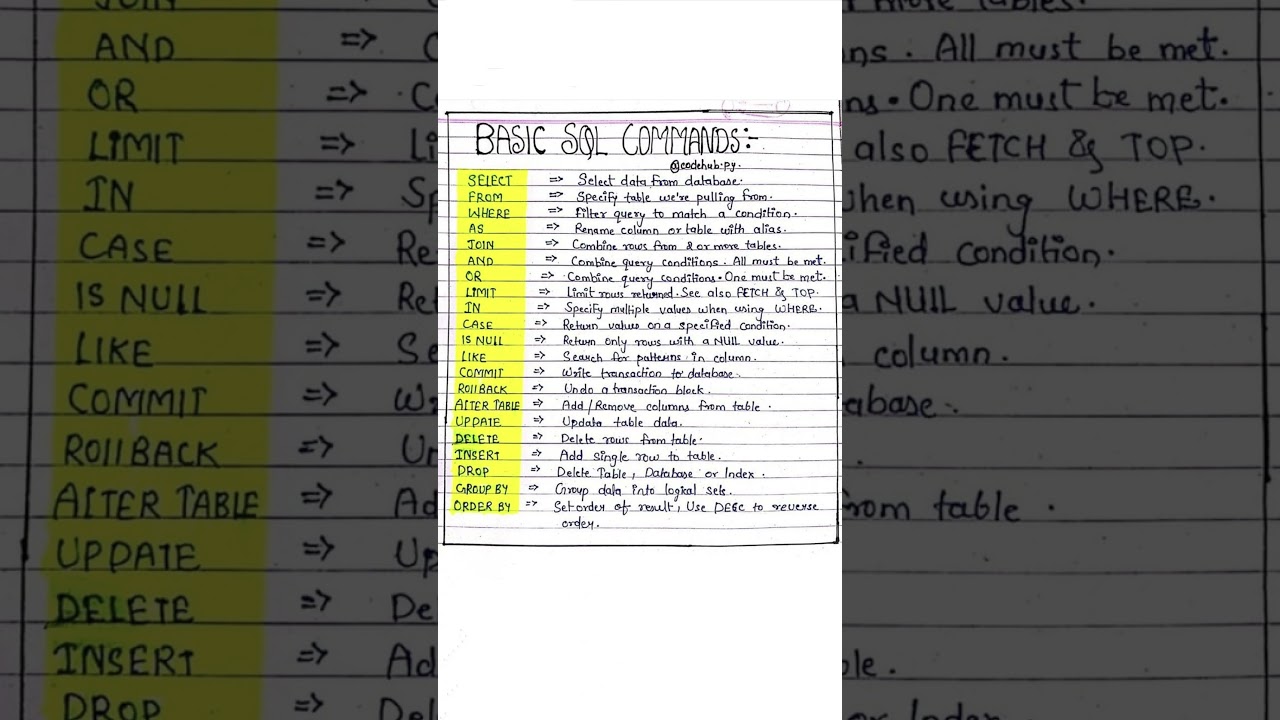 BASIC SQL COMMANDS:-
@codehub.py.
SELECT => Select data from database.
FROM => Specify table we're pulling from.
WHERE => filter query to match a condition.
AS => Rename column or table with alias.
JOIN => Combine rows from 2 or more tables.
AND => Combine query conditions. All must be met.
OR => Combine query conditions. One must be met.
LIMIT => Limit rows returned. See also FETCH & TOP.
IN => Specify multiple values when using WHERE.
CASE => Return values on a specified condition.
IS NULL => Return only rows with a NULL value.
LIKE => Search for patterns in column.
COMMIT => Write transaction to database.
ROllBACK => Undo a transaction block.
AlTER TABLE => Add/Remove columns from table.
UPDATE => Updata table data.
DELETE => Delete rows from table.
INSERT => Add single row to table.
DROP => Delete Table, Database or Index.
GROUP BY => Group data into logical sets.
ORDER BY => Set order of result, Use DESC to reverse
order.